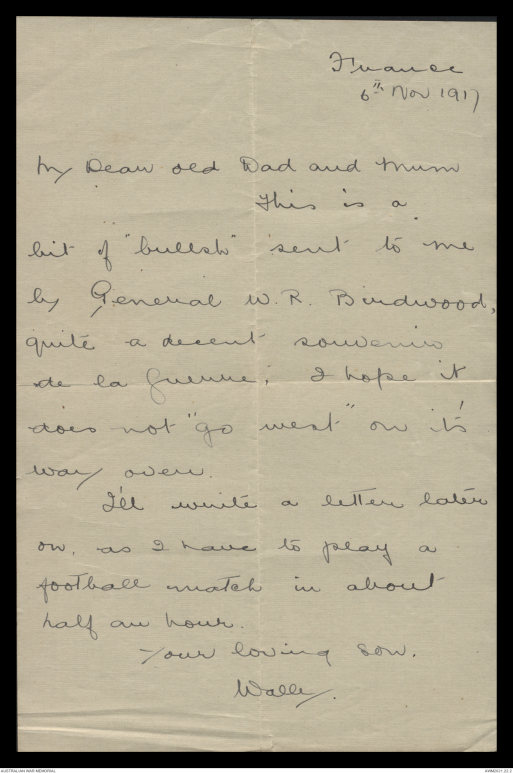 France
6th Nov 1917
My Dear old Dad and Mum
This is a
bit of "bullsh" sent to me
by General W. R. Birdwood,
quite a decent souvenir
de la Guerre; I hope it
does not "go west" on it's
way over.
I'll write a letter later
on, as I have to play a
football match in about
half an hour.
Your loving Son.
Wally.
AUSTRALIAN WAR MEMORIAL